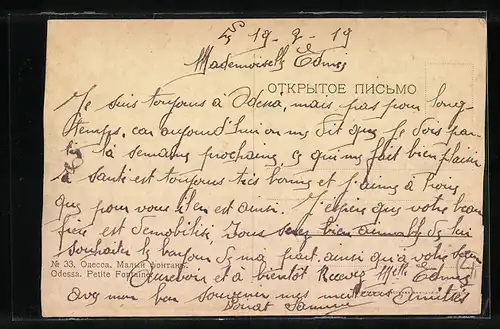 19-2-19
Mademoiselle Edmée
ОТКРЫТОЕ ПИСЬМО
Je suis toujours à Odessa, mais pas pour long-
temps, car aujourd'hui on ma dit que je dois par-
tir la semaine prochaine, ce qui me fait bien plaisir
La santé est toujours très bonne et j'aime à croire
que pour vous il en est ainsi. J'espère que votre beau
frère est démobilisé, Vous serez bien aimable de lui
souhaiter le bonjour de ma part. ainsi qu'à votre sœur
№ 33. Одесса. Малый фонтанъ.
Odessa. Petite Fontaine.
Aurevoir et à bientôt Recevez Melle Edmée
avec mon bon souvenir mes meilleures Amitiés